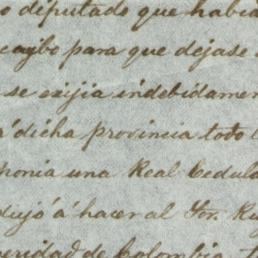 o diputado que habia
caybo para que dejase
se exijia indebidamen
á dicha provincia todo
ponia una Real Cedula
dujo á hacer al Sor.
peridad de Colombia